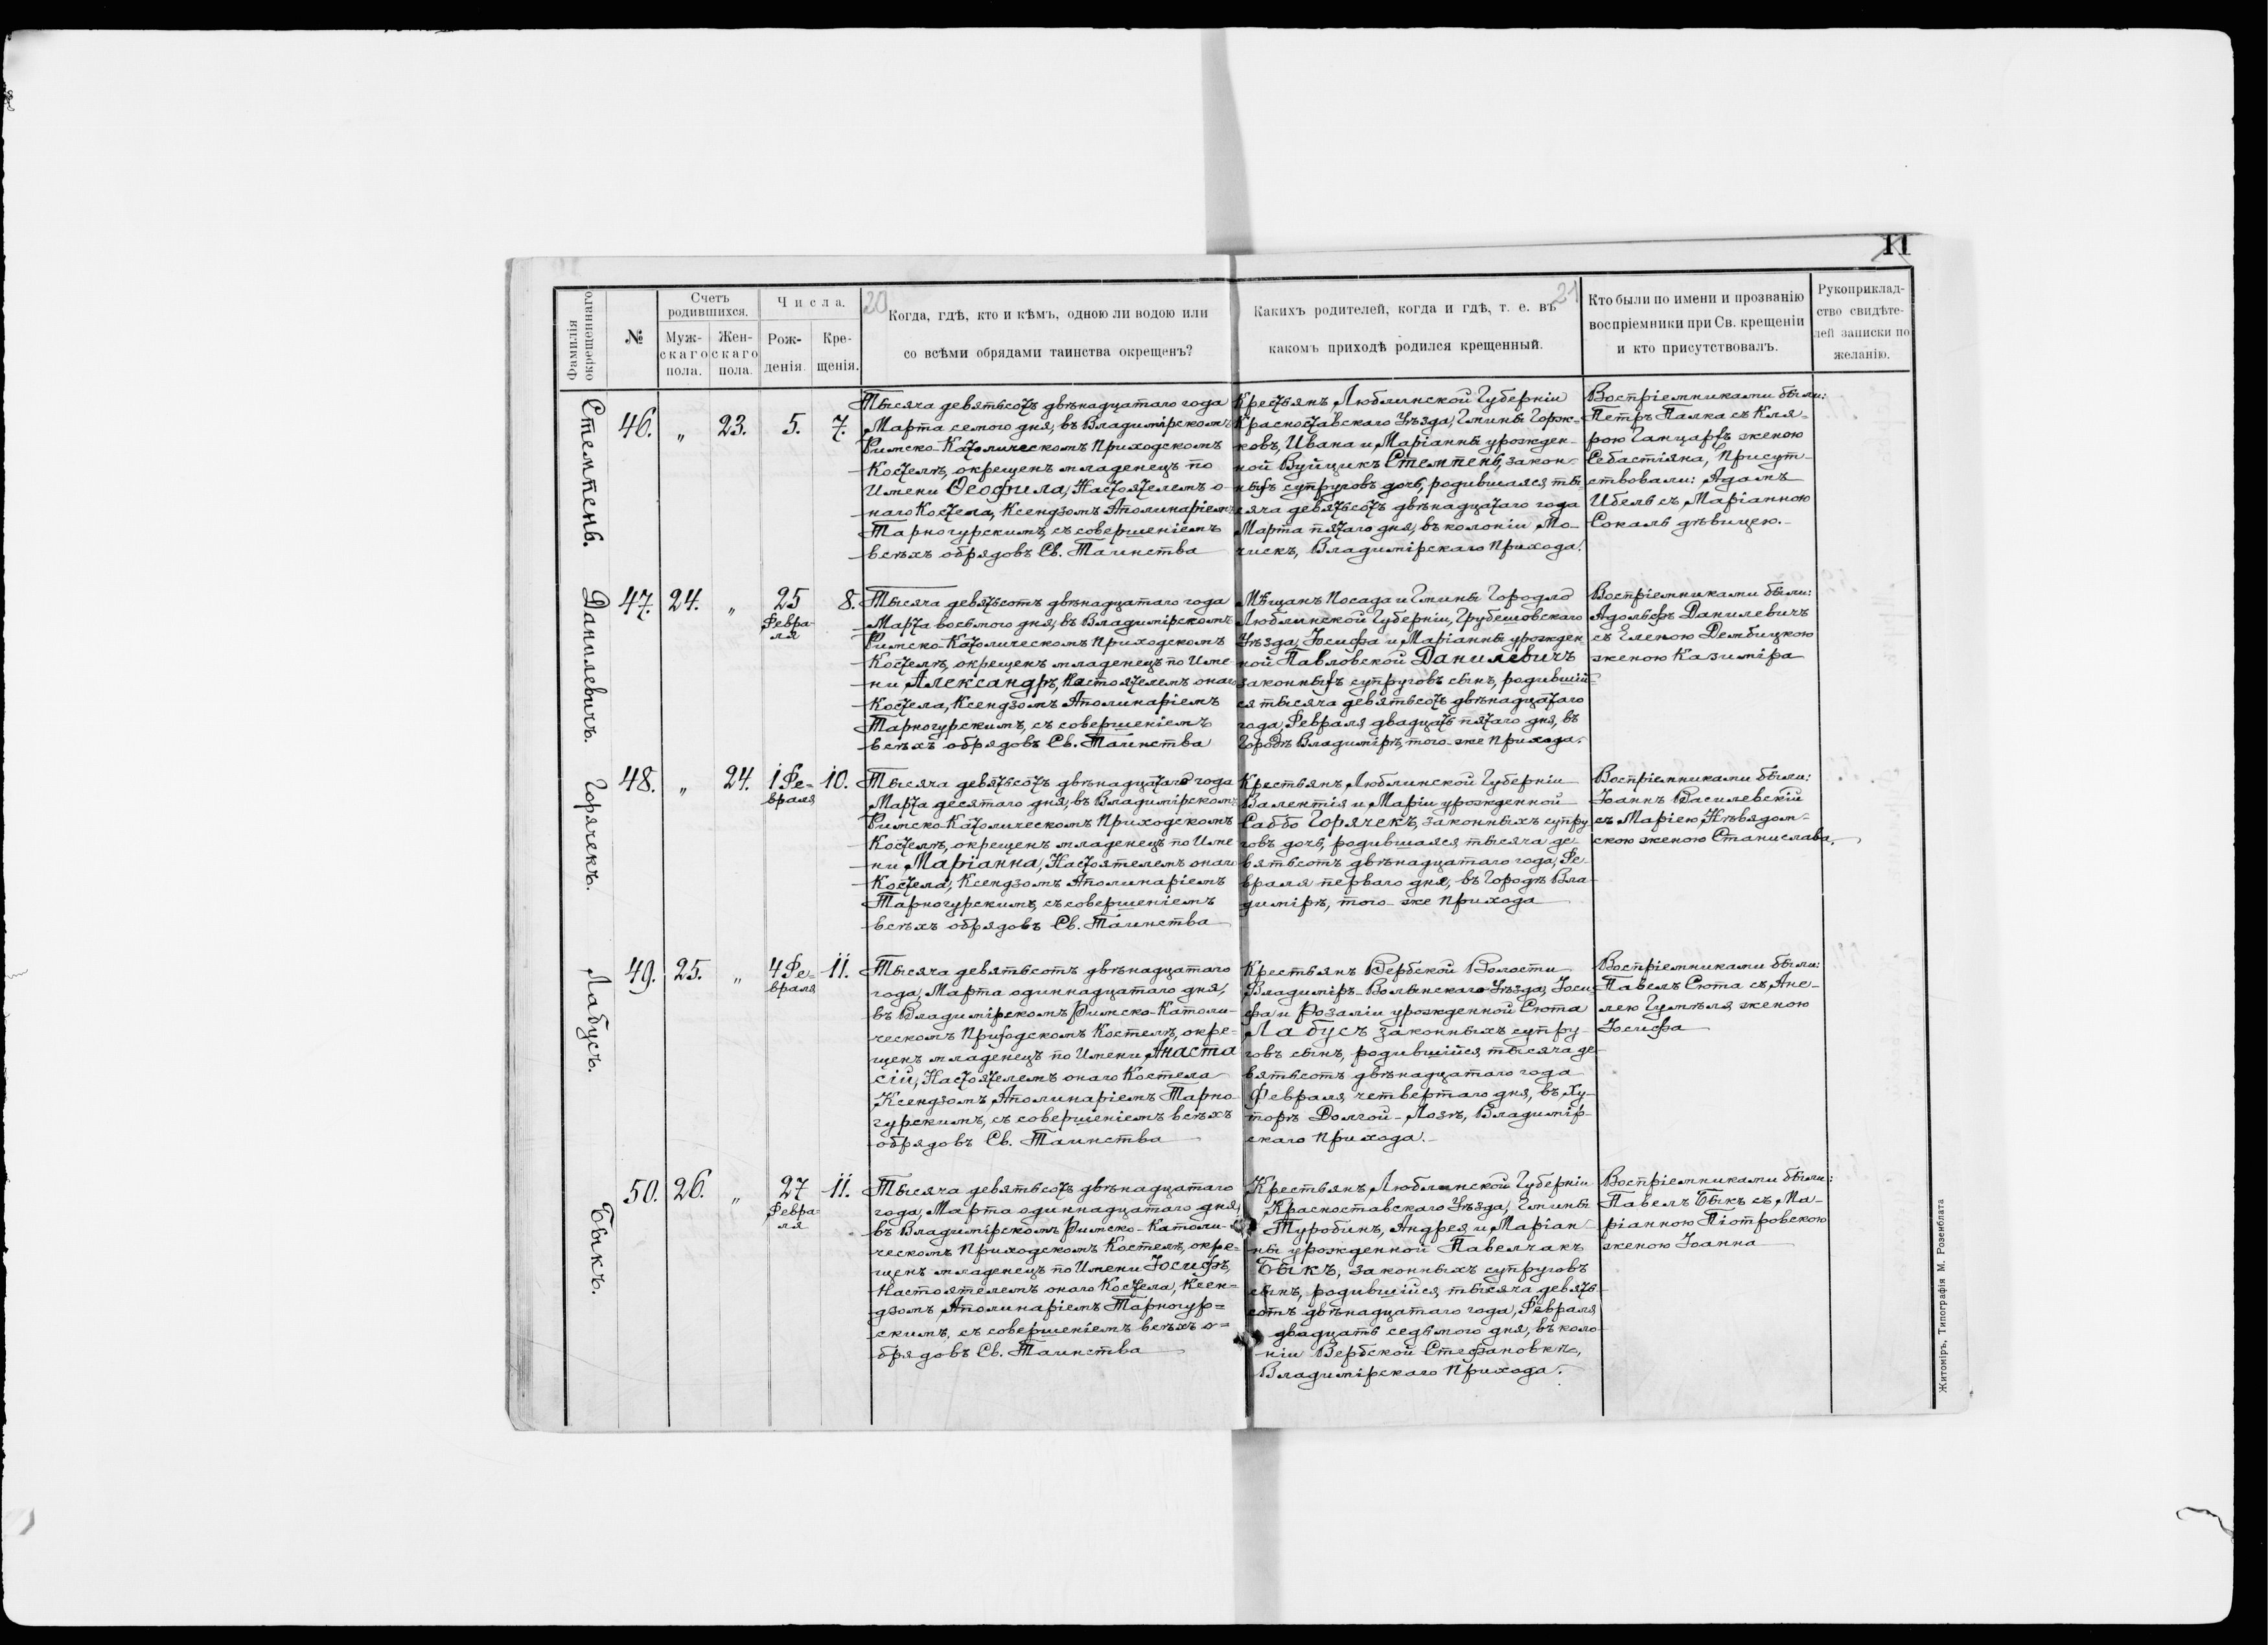 11
20
21
Фамилія окрещеннаго
№
Счетъ родившихся.
Муж-
скаго
пола.
Жен-
скаго
пола.
Числа.
Рож-
денія.
Кре-
щенія.
Когда, гдѣ, кто и кѣмъ, одною ли водою или
со всѣми обрядами таинства окрещенъ?
Какихъ родителей, когда и гдѣ, т. е. въ
какомъ приходѣ родился крещенный.
Кто были по имени и прозванію
воспріемники при Св. крещеніи
и кто присутствовалъ.
Рукоприклад-
ство свидѣте-
лей записки по
желанію.
Стемпень.
46. „ 23. 5. 7.
Тысяча девятьсотъ двѣнадцатаго года
Марта семого дня, въ Владимірскомъ
Римско-Католическомъ Приходскомъ
Костелѣ, окрещенъ младенецъ по
Имени Ѳеофила, Настоятелемъ о-
наго Костела, Ксендзомъ Аполинаріемъ
Тарногурскимъ, съ совершеніемъ
всѣхъ обрядовъ Св. Таинства
Крестьянъ Люблинской Губерніи
Красноставскаго Уѣзда, Гмины Горж-
ковъ, Ивана и Маріанны урожден-
ной Вуйцикъ Стемпень, закон-
ныхъ супруговъ дочь, родившаяся ты-
сяча девятьсотъ двѣнадцатаго года
Марта пятаго дня, въ колоніи Мо-
чискъ, Владимірскаго Прихода.
Воспріемниками были:
Петръ Палка съ Кля-
рою Ганцаръ женою
Себастіяна, Присут-
ствовали: Адамъ
Ибель съ Маріанною
Сокаль дѣвицею.
Данилевичъ.
47. 24. „ 25 Февра-
ля 8.
Тысяча девятьсотъ двѣнадцатаго года
Марта восьмого дня, въ Владимірскомъ
Римско-Католическомъ Приходскомъ
Костелѣ, окрещенъ младенецъ по Име
ни Александръ, Настоятелемъ онаго
Костела, Ксендзомъ Аполинаріемъ
Тарногурскимъ, съ совершеніемъ
всѣхъ обрядовъ Св. Таинства
Мѣщанъ Посада и Гмины Городло
Люблинской Губерніи, Грубешовскаго
Уѣзда, Іосифа и Маріанны урожден
ной Павловской Данилевичъ
законныхъ супруговъ сынъ, родившій-
ся тысяча девятьсотъ двѣнадцатаго
года, Февраля двадцать пятаго дня, въ
Городѣ Владимірѣ, того-же Прихода.
Воспріемниками были:
Адольфъ Данилевичъ
съ Еленою Дембицкою
женою Казиміра
Горячекъ.
48. „ 24. 1 Фе-
враля 10.
Тысяча девятьсотъ двѣнадцатаго года
Марта десятаго дня, въ Владимірскомъ
Римско-Католическомъ Приходскомъ
Костелѣ, окрещенъ младенецъ по Име
ни Маріанна, Настоятелемъ онаго
Костела, Ксендзомъ Аполинаріемъ
Тарногурскимъ, съ совершеніемъ
всѣхъ обрядовъ Св. Таинства
Крестьянъ Люблинской Губерніи
Валентія и Маріи урожденной
Саббо Горячекъ, законныхъ супру
говъ дочь, родившаяся тысяча де-
вятьсотъ двѣнадцатаго года, Фе-
враля перваго дня, въ Городѣ Вла-
димірѣ, того-же Прихода
Воспріемниками были:
Іоаннъ Василевскій
съ Маріею Нѣвядом-
скою женою Станислава.
Лабусъ.
49. 25. „ 4 Фе-
враля 11.
Тысяча девятьсотъ двѣнадцатаго
года, Марта одиннадцатаго дня,
въ Владимірскомъ Римско-Католи-
ческомъ Приходскомъ Костелѣ, окре-
щенъ младенецъ по Имени Анаста
сій, Настоятелемъ онаго Костела
Ксендзомъ Аполинаріемъ Тарно-
гурскимъ, съ совершеніемъ всѣхъ
обрядовъ Св. Таинства
Крестьянъ Вербской Волости
Владиміръ-Волынскаго Уѣзда, Іоси-
фа и Розаліи урожденной Сюта
Лабусъ законныхъ супру-
говъ сынъ, родившійся тысяча де-
вятьсотъ двѣнадцатаго года
Февраля четвертаго дня, въ Ху-
торѣ Долгой-Лозѣ, Владимір-
скаго Прихода.
Воспріемниками были:
Павелъ Сюта съ Ане-
лею Гумѣля женою
Іосифа
Быкъ.
50. 26. „ 27 Февра-
ля 11.
Тысяча девятьсотъ двѣнадцатаго
года, Марта одиннадцатаго дня,
въ Владимірскомъ Римско-Католи-
ческомъ Приходскомъ Костелѣ, окре-
щенъ младенецъ по Имени Іосифъ,
Настоятелемъ онаго Костела, Ксен-
дзомъ Аполинаріемъ Тарногур-
скимъ, съ совершеніемъ всѣхъ о-
брядовъ Св. Таинства
Крестьянъ, Люблинской Губерніи
Красноставскаго Уѣзда, Гмины
Туробинъ, Андрея и Маріан-
ны урожденной Павелчакъ
Быкъ, законныхъ супруговъ
сынъ, родившійся тысяча девять
сотъ двѣнадцатаго года, Февраля
двадцать седьмого дня, въ коло-
ніи Вербской Стефановкѣ,
Владимірскаго Прихода.
Воспріемниками были:
Павелъ Быкъ съ Ма-
ріанною Піотровскою
женою Іоанна
Житоміръ, Типографія М. Розенблата